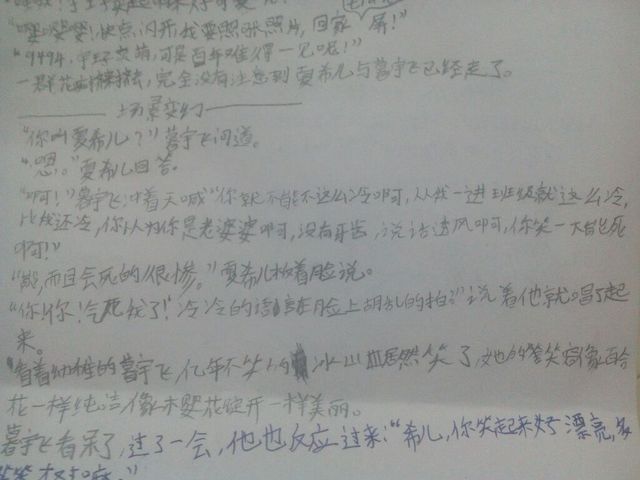 "嘤嘤嘤!快点闪开,我要照张照片,回家 屏!"
"9494,宇环卖萌,可是百年难得一见呢!"
一群花痴挤来挤去,完全没有注意到夏希儿与暮宇飞已经走了。
场景变幻
"你叫夏希儿?"暮宇飞问道。
"嗯。"夏希儿回答。
"啊!"暮宇飞冲着天喊"你就不能不这么冷啊,从我一进班级就这么冷,
比我还冷,你以为你是老婆婆啊,没有牙齿,说话透风啊,你笑一下能死
啊!"
"能,而且会死的很惨。"夏希儿板着脸说。
"你!你!气死我了!冷冷的 在脸上胡乱的拍"说着他就唱了起
来。
看着幼稚的暮宇飞,亿年不笑的 冰山 居然笑了,她的 笑容像百合
花一样纯洁,像木婴花绽开一样美丽。
暮宇飞看呆了,过了一会,他也反应过来:"希儿,你笑起来好漂亮,多
笑笑